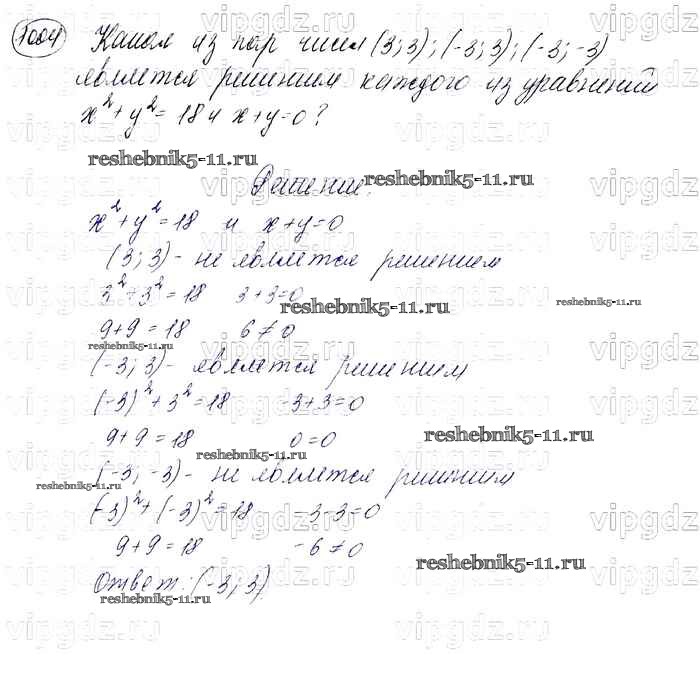 1004 Какая из пар чисел (3; 3); (-3; 3); (-3; -3)
является решением каждого из уравнений
x² + y² = 18 и x+y=0?
reshebnik5-11.ru
reshebnik5-11.ru
Решение.
x² + y² = 18 и x+y=0
(3; 3) - не является решением
3² + 3² = 18 3+3=0
reshebnik5-11.ru
reshebnik5-11.ru
9+9 = 18 6 ≠ 0
reshebnik5-11.ru
(-3; 3) - является решением
(-3)² + 3² = 18 -3+3=0
9+9 = 18 0=0
reshebnik5-11.ru
reshebnik5-11.ru
(-3; -3) - не является решением
reshebnik5-11.ru
(-3)² + (-3)² = 18 -3-3=0
9+9 = 18 -6 ≠ 0
reshebnik5-11.ru
Ответ: (-3; 3)
reshebnik5-11.ru
vipgdz